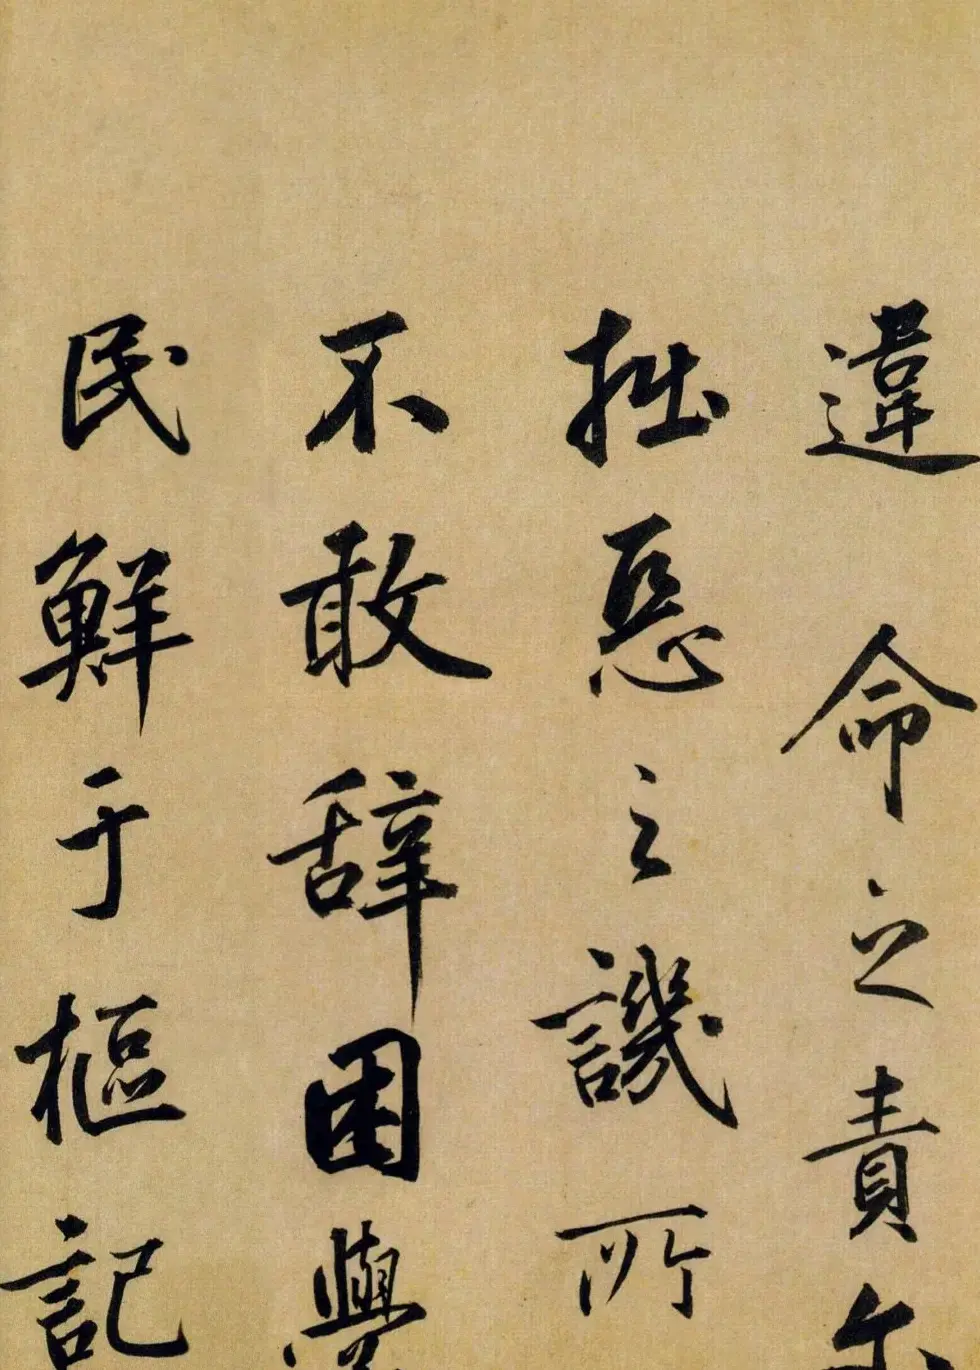 違命之責尓
拙惡之譏所
不敢辭困學
民鮮于樞記